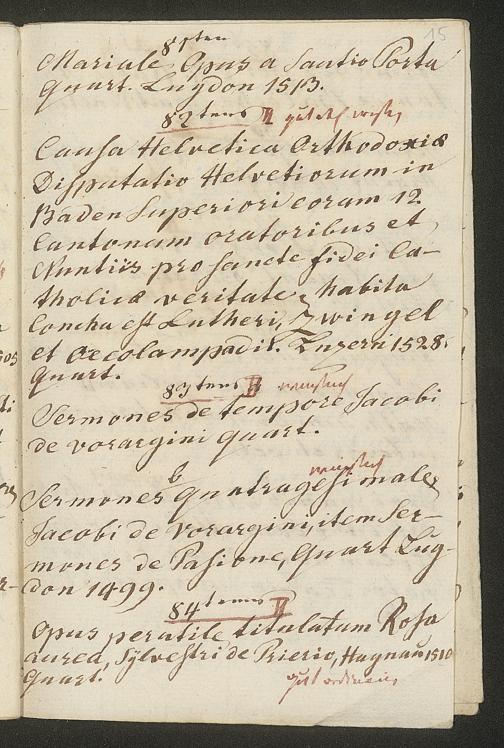 15
81ten
Mariale Opus a Santio Porta
Quart. Lugdon 1513.
82tens II
Causa Helvetica Orthodoxiæ
Disputatio Helvetiorum in
Baden Superiori coram 12
Cantonum oratoribus et
Nuntiis pro sancte fidei Ca-
tholicæ veritate, habita
Concha est Lutheri, Zwingel
et Oecolampadii. Luzern 1528.
Quart.
83tens II
Sermones de tempore Jacobi
de voragini quart.
b
Sermones Quatragesimale
Jacobi de Voragini, item Ser-
mones de Pasione, Quart Lug-
don 1499.
84tens II
Opus peratile titulatum Rosa
aurea, Sylvestri de Prierio, Hagnau 1510
Quart.